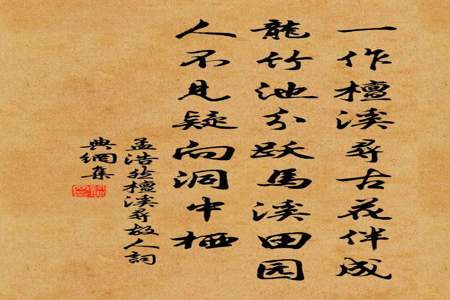 一作檀溪尋古花伴成
龍竹池分跃馬溪田园
人不見疑向洞中栖
孟浩然檀溪尋故人詞
典網集